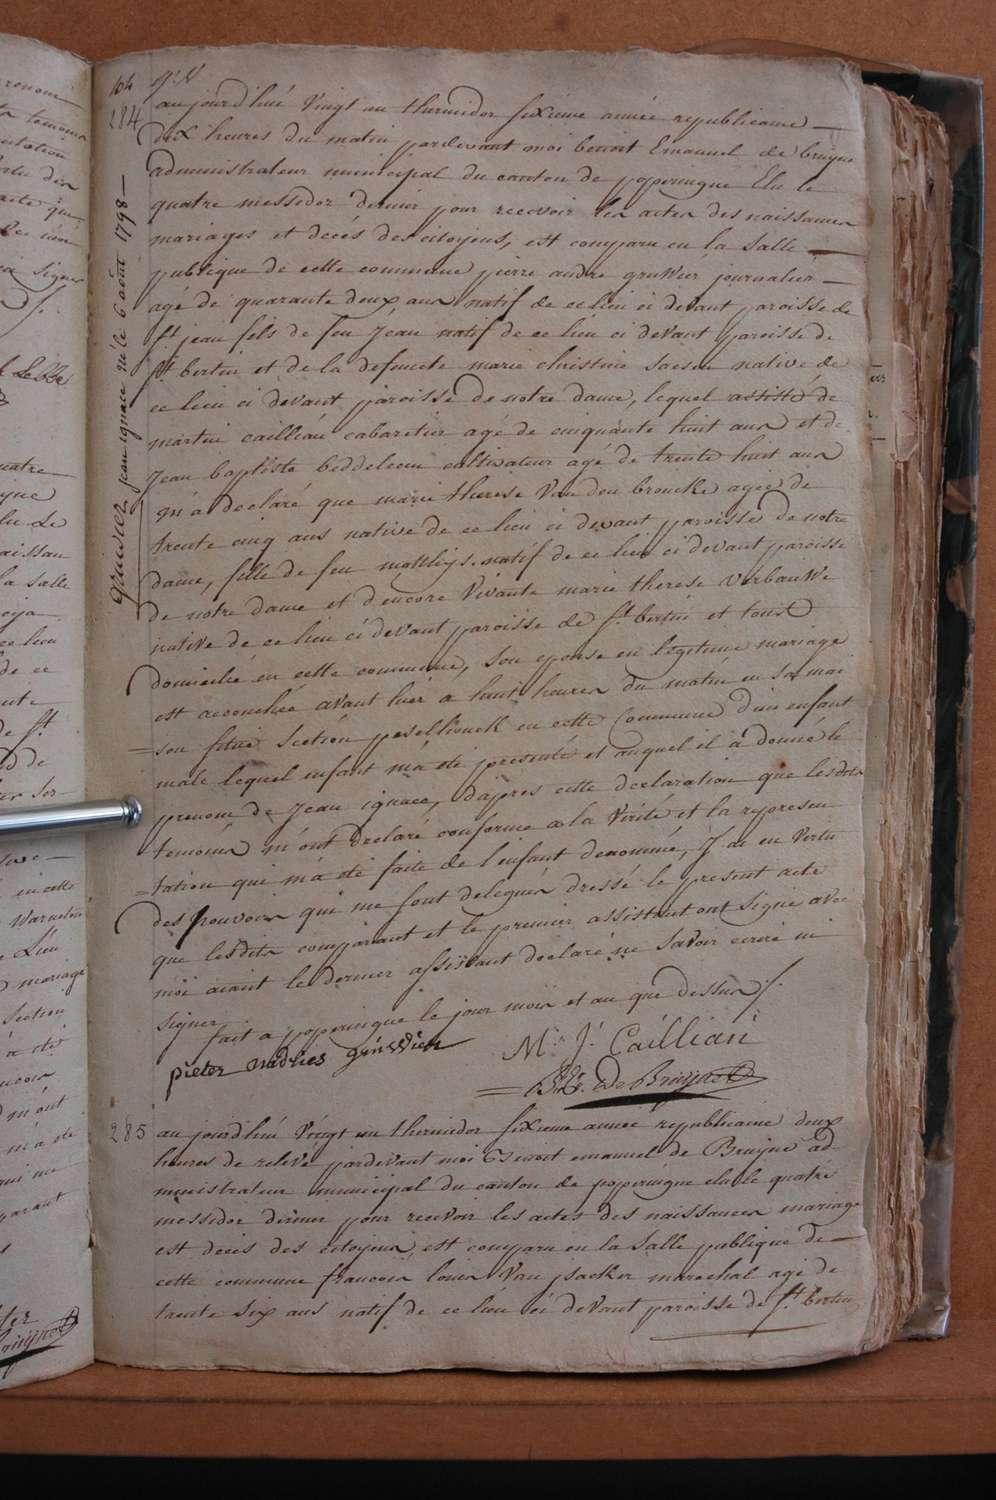 284
aujourd'hui Vingt un thermidor sixieme année republicaine —
dix heures du matin pardevant moi benoit Emanuel de bruyne
administrateur municipal du canton de poperingue Elu le
quatre messidor dernier pour recevoir les actes des naissances
mariages et décès des citoyens, est comparu en la salle —
publique de cette commune pierre andre gruwier journalier —
agé de quarante deux ans natif de ce lieu ci devant paroisse de
st jean fils de feu Jean natif de ce lieu ci devant paroisse de
st bertin et de la defuncte marie christine saesen native de
ce lieu ci devant paroisse de notre dame, lequel assisté de
martin cailliau cabaretier agé de cinquante huit ans et de
Jean baptiste beddeleem cultivateur agé de trente huit ans
m'a declaré que marie therese Vanden broucke agée de
trente cinq ans native de ce lieu ci devant paroisse de notre
dame, fille de feu matthys natif de ce lieu ci devant paroisse
de notre dame et d'encore Vivante marie therese verbauwe
native de ce lieu ci devant paroisse de st bertin et tous
domicilié en cette commune, son epouse en légitime mariage
est accouchée avant hier a huit heures du matin en sa mai
= son situé section peselhouck en cette commune d'un enfant
male lequel enfant m'a été presenté et auquel il a donné le
prenom de Jean ignace, d'apres cette declaration que lesdits
temoins m'ont declaré conforme a la Vérité et la represen
= tation qui m'a été faite de l'enfant denommé, J'ai en Vertu
des pouvoirs qui me sont delegués dressé le present acte
que lesdits comparant et le premier assistant ont signé avec
moi aiant le dernier assistant declaré ne savoir ecrire ni
signer
fait a poperingue le jour mois et an que dessus /.
pieter andries gruwier
M: J: Cailliau
= B: E. De Bruyne
gruwier jean ignace né le 6 août 1798 —
285 aujourd'hui Vingt un thermidor sixieme année republicaine deux
heures de relevé pardevant moi Benoit emanuel de Bruyne ad
ministrateur municipal du canton de poperingue elu le quatre
messidor dernier pour recevoir les actes des naissances mariage
est décès des citoyens, est comparu en la salle publique de —
cette commune francois louis Van packer marechal agé de
trente six ans natif de ce lieu ci devant paroisse de st bertin